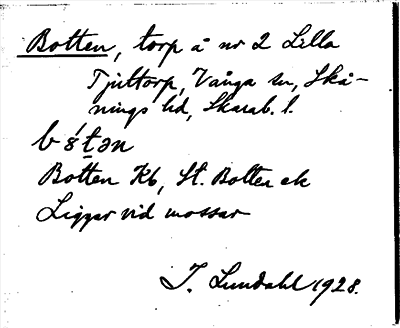 Botten, torp å nr 2 Lilla
Tjuttorp, Vånga sn, Skå-
nings hd, Skarab. l.
bótən
Botten Kb, St. Botten ek
Ligger vid mossar
I. Lundahl 1928.